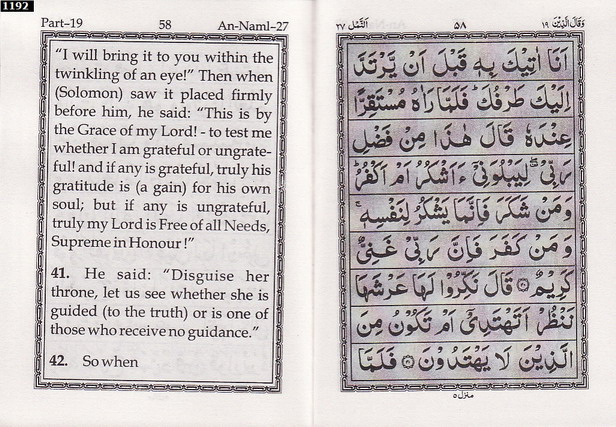 1192
Part–19 58 An-Naml–27
“I will bring it to you within the
twinkling of an eye!” Then when
(Solomon) saw it placed firmly
before him, he said: “This is by
the Grace of my Lord! - to test me
whether I am grateful or ungrate-
ful! and if any is grateful, truly his
gratitude is (a gain) for his own
soul; but if any is ungrateful,
truly my Lord is Free of all Needs,
Supreme in Honour!”
41. He said: “Disguise her
throne, let us see whether she is
guided (to the truth) or is one of
those who receive no guidance.”
42. So when
وَقَالَ الَّذِيْنَ ١٩ ٥٨ اَلنَّمْل ٢٧
اَنَا اٰتِيْكَ بِهٖ قَبْلَ اَنْ يَّرْتَدَّ
اِلَيْكَ طَرْفُكَ ؕ فَلَمَّا رَاٰهُ مُسْتَقِرًّا
عِنْدَهٗ قَالَ هٰذَا مِنْ فَضْلِ
رَبِّيْ ۖ لِيَبْلُوَنِيْٓ ءَاَشْكُرُ اَمْ اَكْفُرُ ؕ
وَمَنْ شَكَرَ فَاِنَّمَا يَشْكُرُ لِنَفْسِهٖ ۚ
وَمَنْ كَفَرَ فَاِنَّ رَبِّيْ غَنِيٌّ
كَرِيْمٌ ۝٤٠ قَالَ نَكِّرُوْا لَهَا عَرْشَهَا
نَنْظُرْ اَتَهْتَدِيْٓ اَمْ تَكُوْنُ مِنَ
الَّذِيْنَ لَا يَهْتَدُوْنَ ۝٤١ فَلَمَّا
منزل ٥